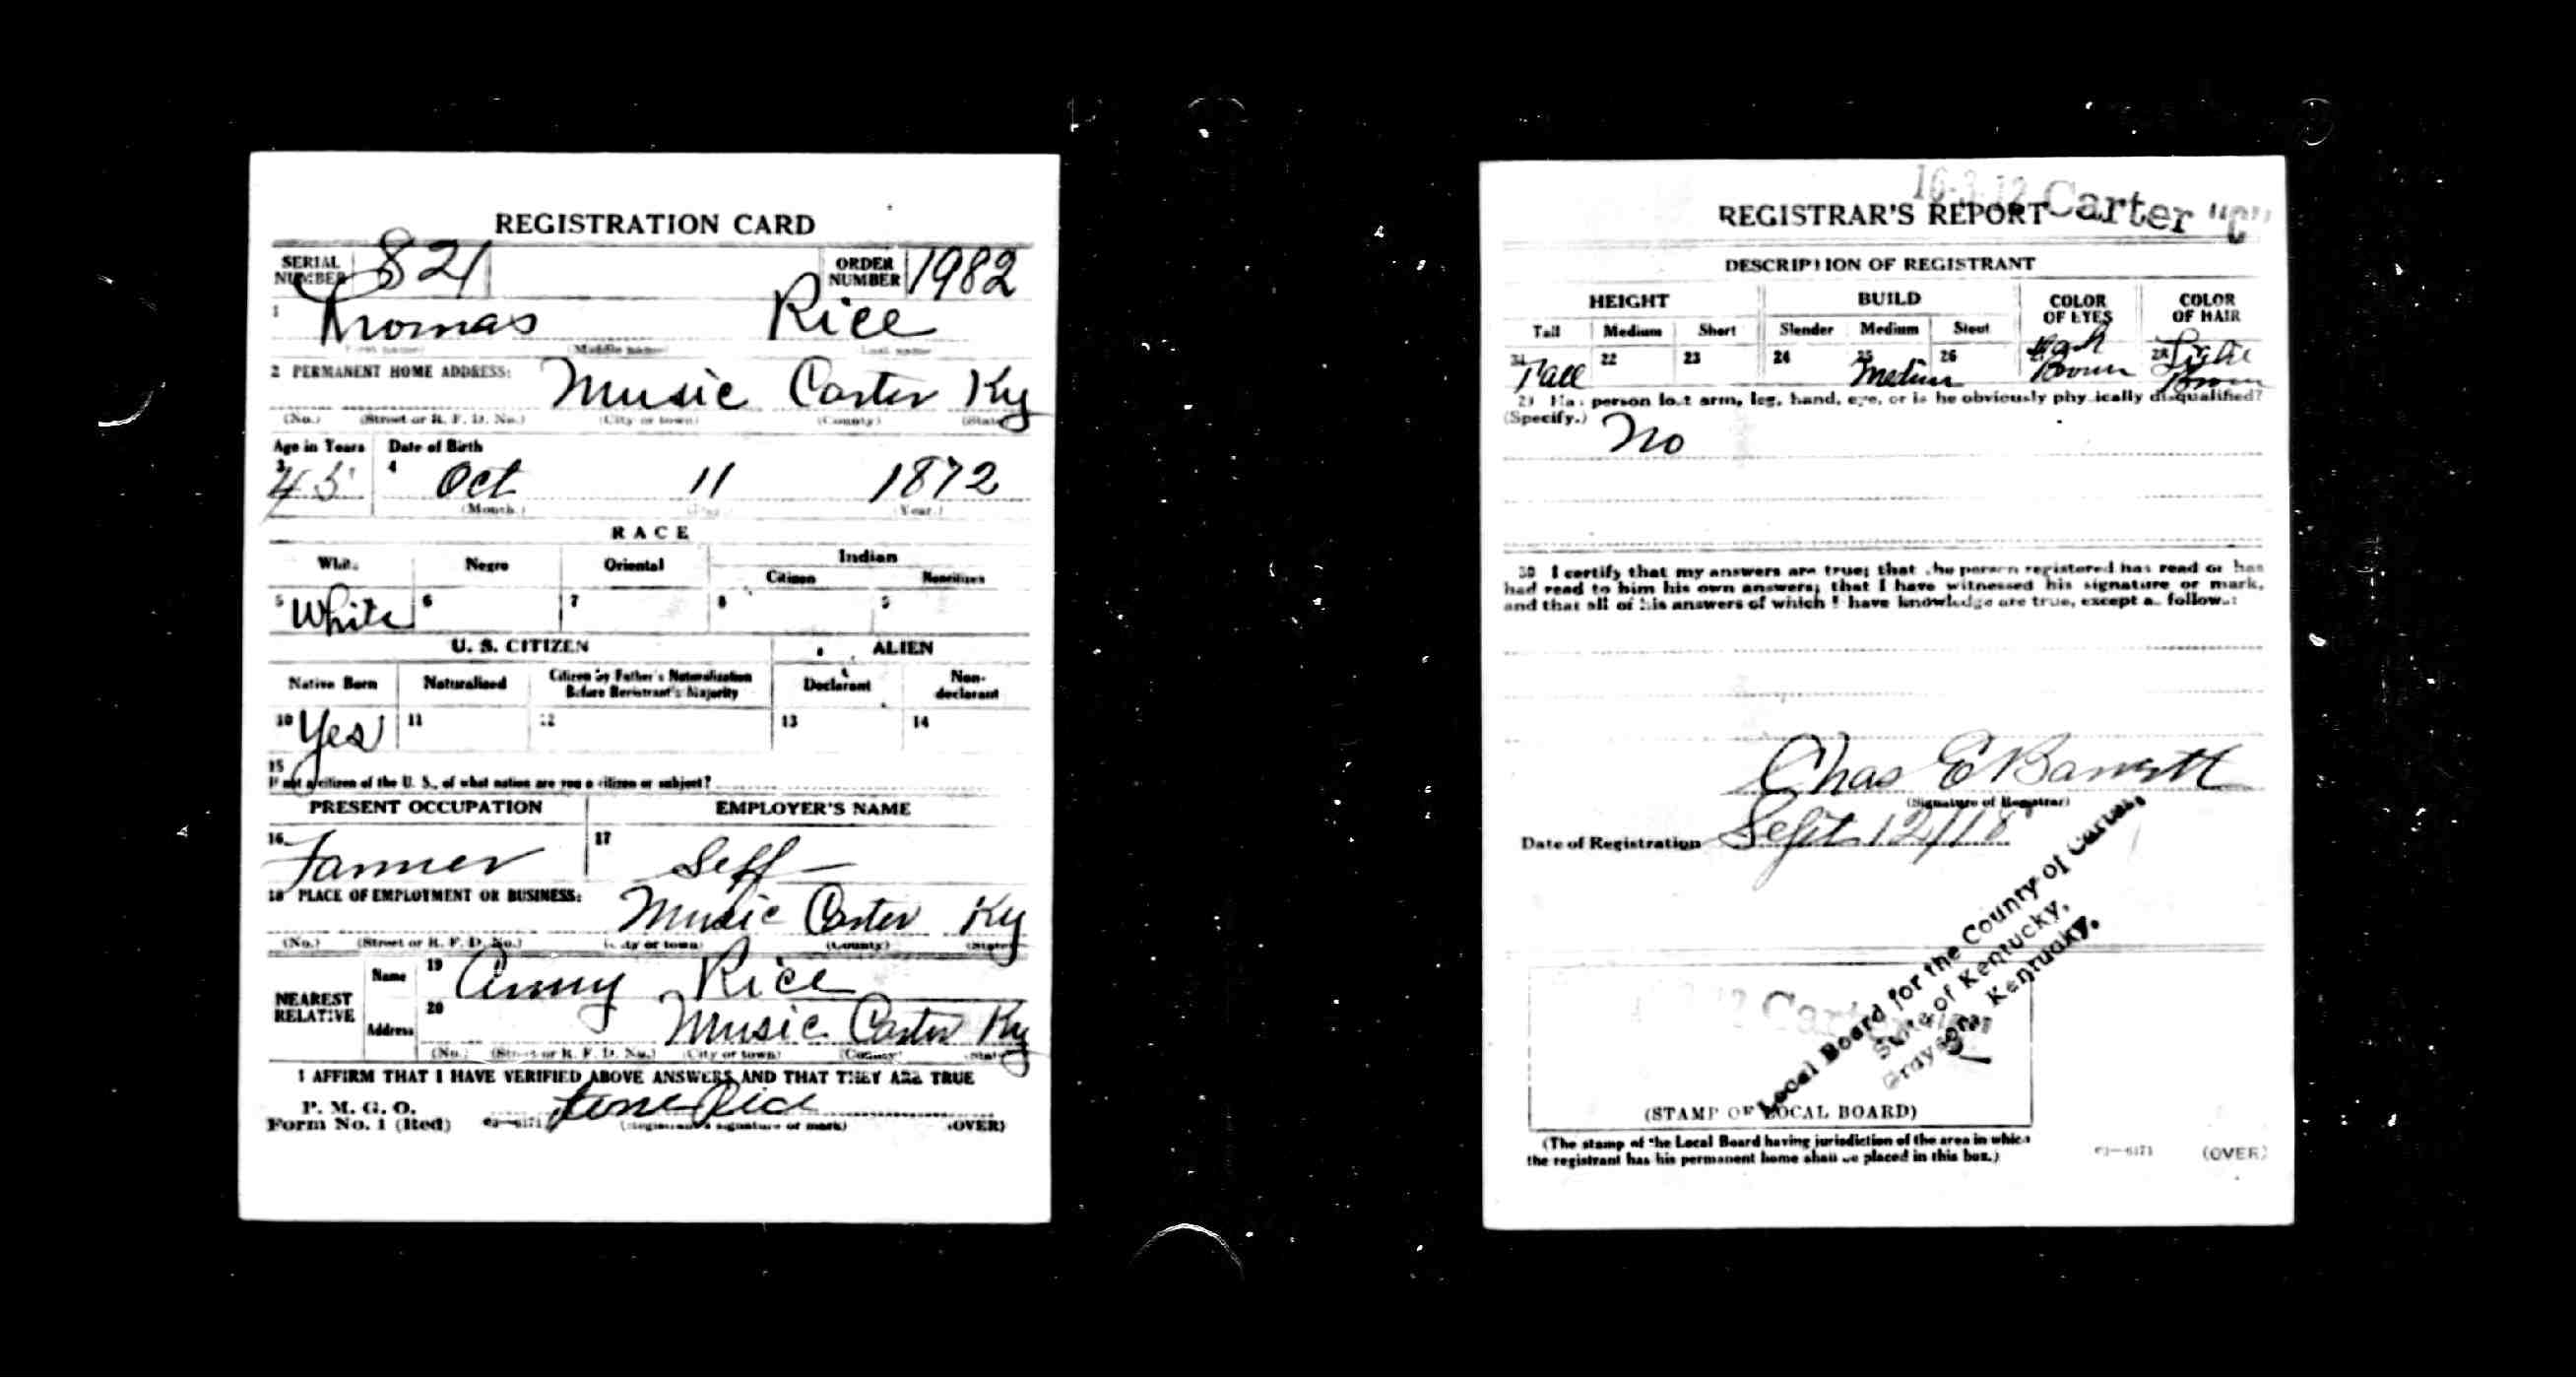 REGISTRATION CARD
SERIAL NUMBER 821 ORDER NUMBER 1982
1 Thomas Rice
(First name) (Middle name) (Last name)
2 PERMANENT HOME ADDRESS: Music Carter Ky
(No.) (Street or R. F. D. No.) (City or town) (County) (State)
Age in Years Date of Birth
3 45 4 Oct 11 1872
(Month.) (Day.) (Year.)
RACE
White Negro Oriental Indian
Citizen Noncitizen
5 White 6 7 8 9
U. S. CITIZEN ALIEN
Native Born Naturalized Citizen by Father's Naturalization Before Registrant's Majority Declarant Non-declarant
10 Yes 11 12 13 14
15
If not a citizen of the U. S., of what nation are you a citizen or subject?
PRESENT OCCUPATION EMPLOYER'S NAME
16 Farmer 17 Self
18 PLACE OF EMPLOYMENT OR BUSINESS: Music Carter Ky
(No.) (Street or R. F. D. No.) (City or town) (County) (State)
NEAREST RELATIVE Name 19 Rice
Address 20 Music Carter Ky
(No.) (Street or R. F. D. No.) (City or town) (County) (State)
I AFFIRM THAT I HAVE VERIFIED ABOVE ANSWERS AND THAT THEY ARE TRUE
P. M. G. O.
Form No. 1 (Red) 03—6171 Rice (Registrant's signature or mark) (OVER)
Carter "C"
REGISTRAR'S REPORT
DESCRIPTION OF REGISTRANT
HEIGHT BUILD COLOR OF EYES COLOR OF HAIR
Tall Medium Short Slender Medium Stout
21 Tall 22 23 24 25 Medium 26 27 Dark Brown 28 Light Brown
29 Has person lost arm, leg, hand, eye, or is he obviously physically disqualified?
(Specify.) No
30 I certify that my answers are true; that the person registered has read or has
had read to him his own answers; that I have witnessed his signature or mark,
and that all of his answers of which I have knowledge are true, except as follows:
Chas E
(Signature of Registrar)
Date of Registration Sept 12/18
Local Board for the County of Carter,
State of Kentucky,
Grayson, Kentucky.
(STAMP OF LOCAL BOARD)
(The stamp of the Local Board having jurisdiction of the area in which
the registrant has his permanent home shall be placed in this box.)
03—6171 (OVER)